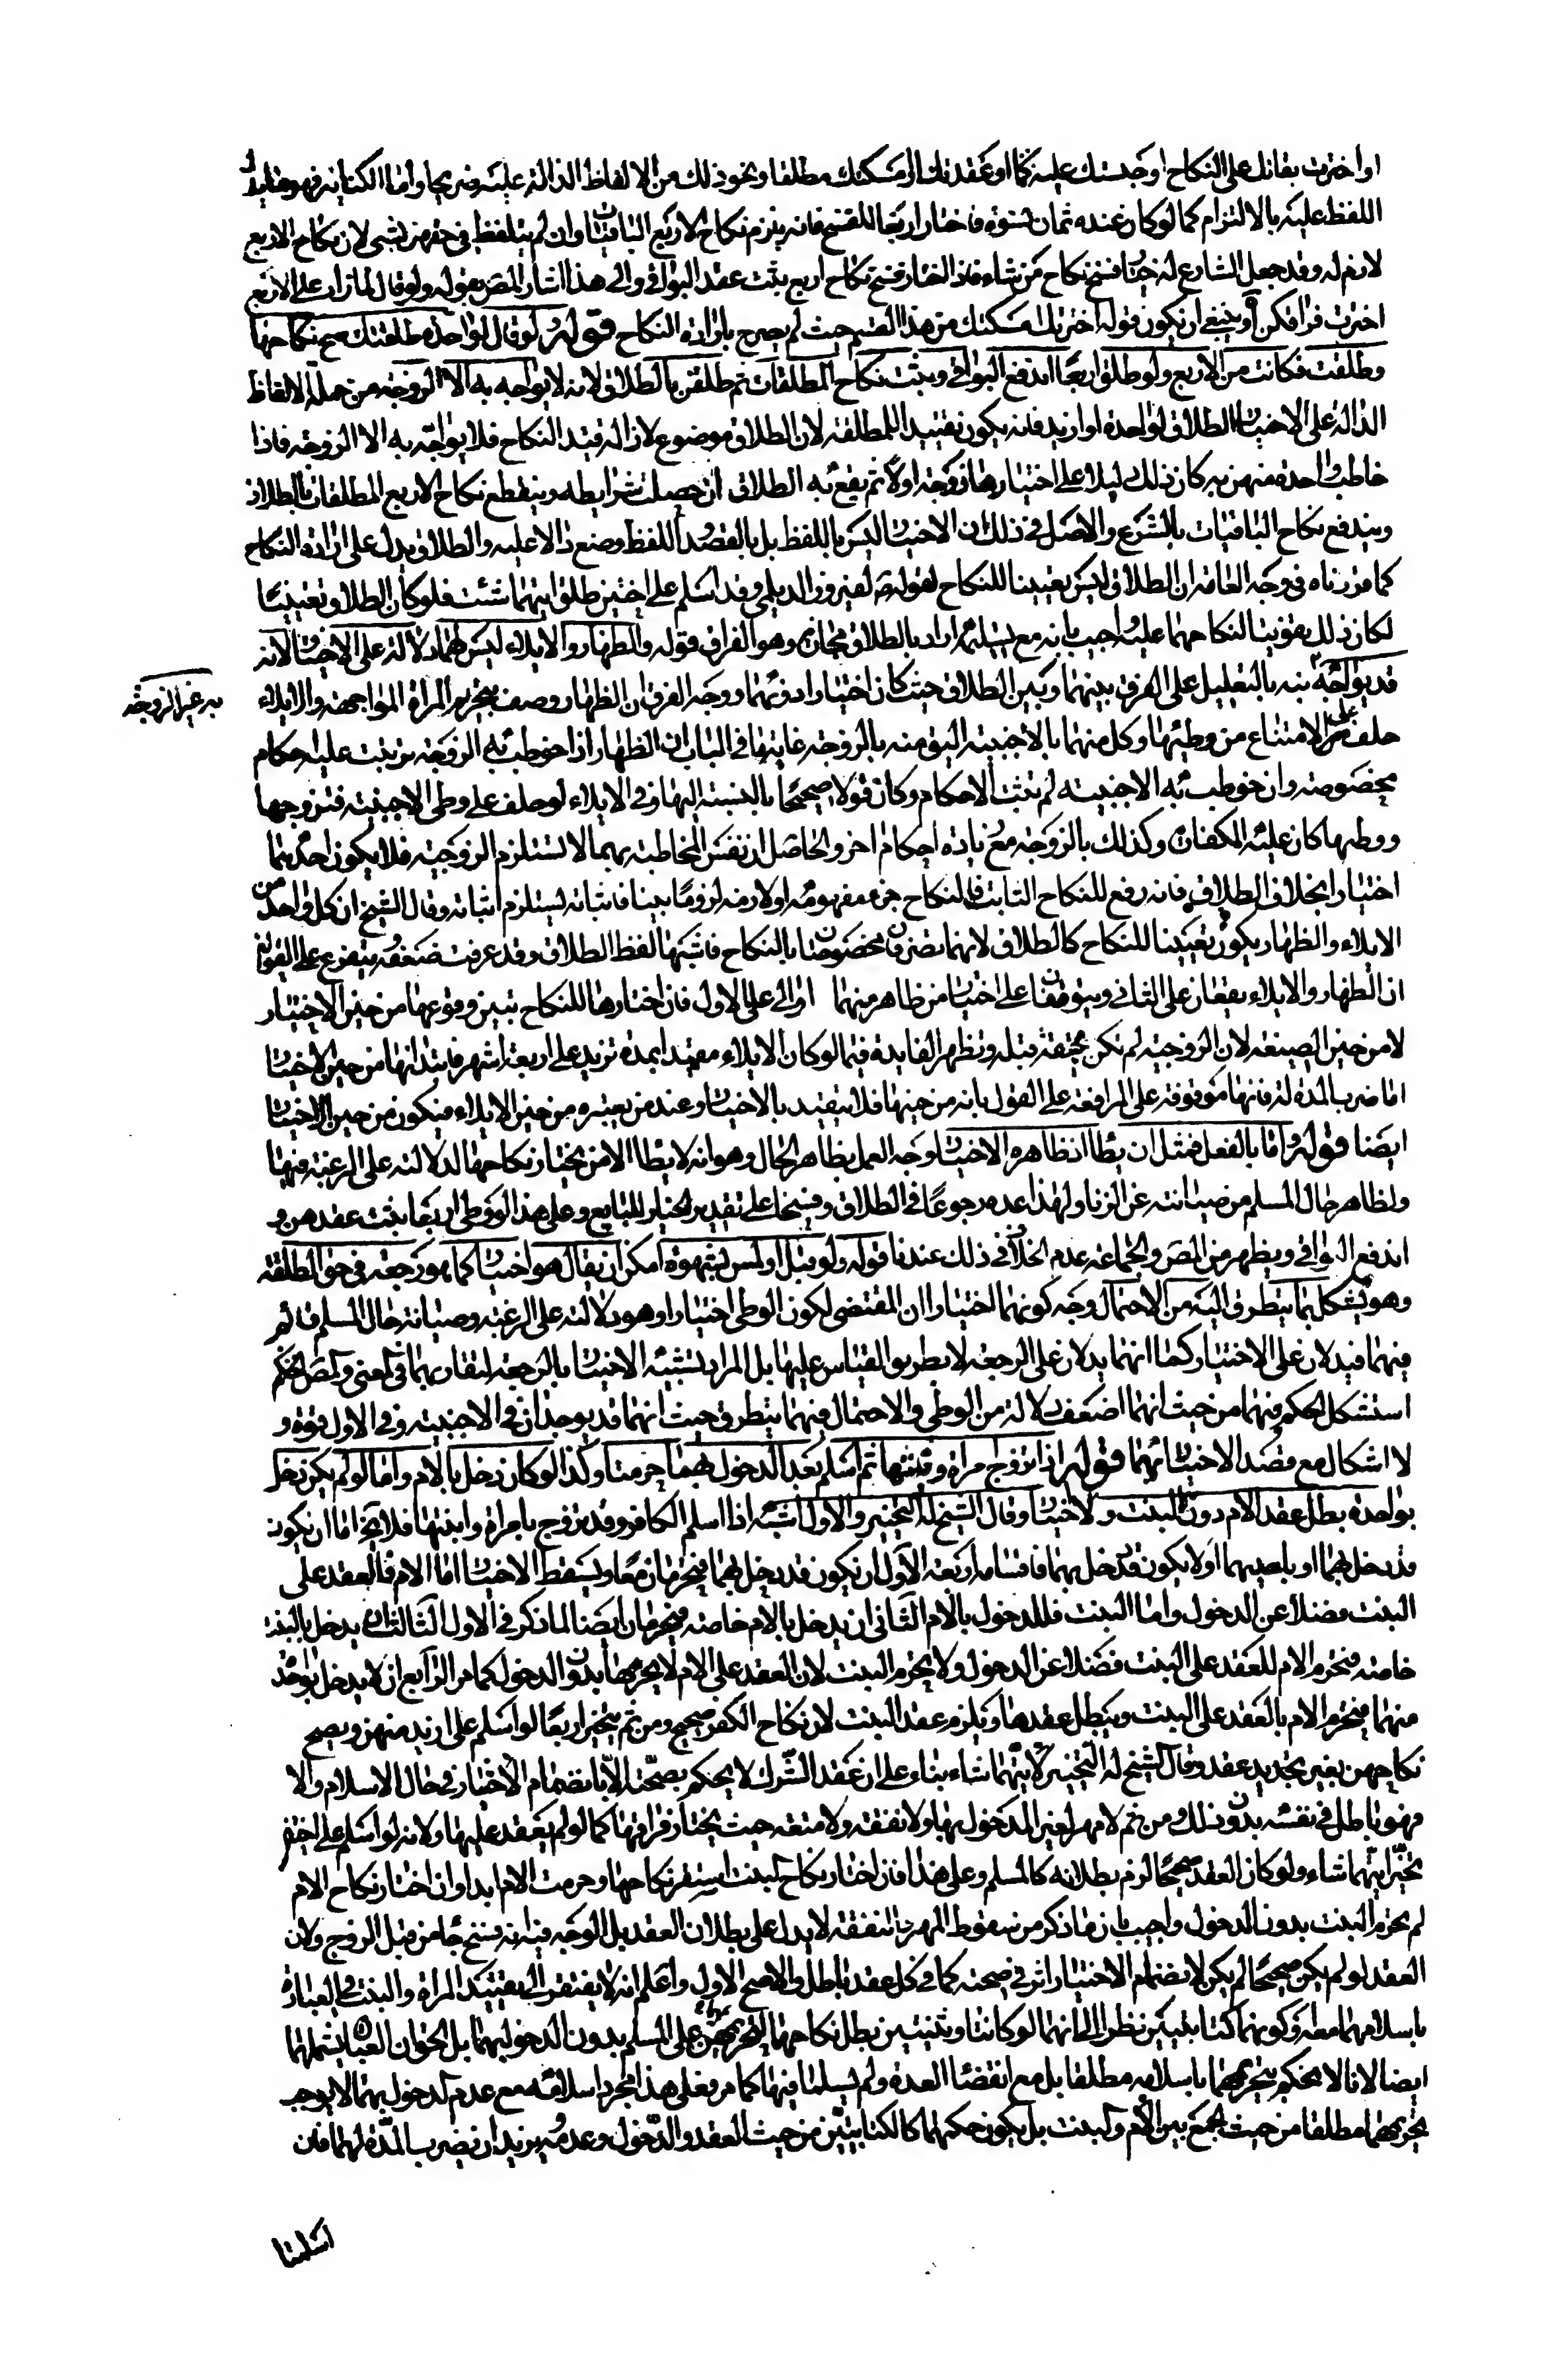 او اخترت بقائك على النكاح او حبستك عليه نكاحا او عقدتك او امسكتك مطلقا ونحو ذلك من الالفاظ الدالة عليه صريحا واما الكناية فهو ما يدل
اللفظ عليه بالالتزام كما لو كان عنده ثمان نسوة فاختار اربعا للفسخ فانه يلزم نكاح الاربع الباقيات وان لم يتلفظ في حقهن بشئ لان نكاح الاربع
لازم له وقد جعل الشارع له خيار فسخ نكاح من شاء فاذا اختار فسخ نكاح اربع يثبت عقد البواقي والى هذا اشار المص بقوله ولو قال لما زاد على الاربع
اخترت فراقكن او ينبغي ان يكون قوله اخترتك امسكتك من هذا القسم حيث لم يصرح بارادة النكاح قوله ولو قال لواحدة طلقتك صح نكاحها
وطلقت فكانت من الاربع ولو طلق اربعا اندفع البواقي ويثبت نكاح المطلقات ثم طلقن بالطلاق لانه لا يواجه به الا الزوجة من جملة الالفاظ
الدالة على الاختيار الطلاق لواحدة او ازيد فانه يكون تعيينا للمطلقة لان الطلاق موضوع لازالة قيد النكاح فلا يواجه به الا الزوجة فاذا
خاطب واحدة منهن به كان ذلك دليلا على اختيارها زوجة اولا ثم يقع به الطلاق ان حصلت شرايطه وينقطع نكاح الاربع المطلقات بالطلاق
ويندفع نكاح الباقيات بالشرع والاصل في ذلك ان الاختيار ليس باللفظ بل بالقصد واللفظ وضع دالا عليه والطلاق يدل على ارادة النكاح
كما قررناه في وجه العامة ان الطلاق ليس تعيينا للنكاح لقوله ص لفيروز الديلمي وقد اسلم على اختين طلق ايتهما شئت فلو كان الطلاق تعيينا
لكان ذلك تفويتا لنكاحهما عليه واجيب بانه مع تسليمه اراد بالطلاق مجازه وهو الفراق قوله والظهار والايلاء ليس لهما دلالة على الاختيار لانه
قد يواجه به غير الزوجة نبه بالتعليل على الفرق بينهما وبين الطلاق حيث كان اختيارا دونهما ووجه الفرق ان الظهار وصف بتحريم المرأة المواجهة والايلاء
حلف على الامتناع من وطئها وكل منهما بالاجنبية اليق منه بالزوجة غايتها في الباب ان الظهار اذا خوطب به الزوجة ترتبت عليه احكام
مخصوصة وان خوطب به الاجنبية لم تثبت الاحكام وكان قولا صحيحا بالنسبة اليها وفي الايلاء لو حلف على وطى الاجنبية فتزوجها
ووطئها كان عليه الكفارة وكذلك بالزوجة مع زيادة احكام اخر والحاصل ان نفس المخاطبة بهما لا تستلزم الزوجية فلا يكون احدهما
اختيارا بخلاف الطلاق فانه رفع للنكاح الثابت فالنكاح جزء مفهومه او لازمه لزوما بينا فاثباته يستلزم اثباته وقال الشيخ ان كل واحد من
الايلاء والظهار يكون تعيينا للنكاح كالطلاق لانهما تصرفان مخصوصان بالنكاح فاشبها لفظ الطلاق وقد عرفت ضعفه ويتفرع على القولين
ان الظهار والايلاء يقعان على الثاني ويتوقفان على اختيار من ظاهر منهما او الى على الاول فان اختارها للنكاح تبين وقوعهما من حين الاختيار
لا من حين الصيغة لان الزوجية لم تكن محققة قبله وتظهر الفايدة فيما لو كان الايلاء مقيدا بمدة تزيد على اربعة اشهر فابتداؤها من حين الاختيار
اما ضرب المدة له فانها موقوفة على المرافعة على القول بانه من حينها فلا يتقيد بالاختيار وعند من يعتبره من حين الايلاء فيكون من حين الاختيار
ايضا قوله واما بالفعل فمثل ان يطأ اذ ظاهره الاختيار وجه العمل بظاهر الحال وهو انه لا يطأ الا من يختار نكاحها لدلالته على الرغبة فيها
ولظاهر حال المسلم من صيانته عن الزنا ولهذا عد رجوعا في الطلاق وفسخا على تقدير الخيار للبايع وعلى هذا لو وطى اربعا يثبت عقدهن و
اندفع البواقي ويظهر من المص والجماعة عدم الخلاف في ذلك عندنا قوله ولو قبل او لمس بشهوة امكن ان يقال هو اختيار كما هو رجعة في حق المطلقة
وهو يشكل بما يتطرق اليه من الاحتمال وجه كونهما اختيارا ان المقتضي لكون الوطى اختيارا وهو دلالته على الرغبة وصيانة حال المسلم قائم
فيهما فيدلان على الاختيار كما انهما يدلان على الرجعة لا بطريق القياس عليها بل المراد تشبيه الاختيار بالرجعة لتقاربهما في المعنى والمص
استشكل الحكم فيهما من حيث انهما اضعف دلالة من الوطى والاحتمال فيهما يتطرق حيث انهما قد يوجدان في الاجنبية وفي الاول قوة و
لا اشكال مع قصد الاختيار بهما قوله اذا تزوج امرأة وبنتها ثم اسلم بعد الدخول بهما حرمتا وكذا لو كان دخل بالام واما لو لم يكن دخل
بواحدة بطل عقد الام دون البنت ولا اختيار وقال الشيخ له التخيير والاول اشبه اذا اسلم الكافر وقد تزوج بامرأة وابنتها فلا يخ اما ان يكون
قد دخل بهما او باحديهما او لا يكون قد دخل بهما فاقسامه اربعة الاول ان يكون قد دخل بهما فيحرمان معا ويسقط الاختيار اما الام فالعقد على
البنت فضلا عن الدخول واما البنت فللدخول بالام الثاني ان يدخل بالام خاصة فيحرمان ايضا لما ذكر في الاول الثالث ان يدخل بالبنت
خاصة فيحرم الام للعقد على البنت فضلا عن الدخول ولا يحرم البنت لان العقد على الام لا يحرمها بدون الدخول كما مر الرابع ان لا يدخل بواحدة
منهما فيحرم الام بالعقد على البنت ويبطل عقدها ويلزم عقد البنت لان نكاح الكفر صحيح ومن ثم يتخير اربعا لو اسلم على ازيد منهن ويصح
نكاحهن بغير تجديد عقد وقال الشيخ له التخيير لايتهما شاء بناء على ان عقد الشرك لا يحكم بصحته الا بانضمام الاختيار في حال الاسلام والا
فهو باطل في نفسه بدون ذلك ومن ثم لا مهر لغير المدخول بها ولا نفقة ولا متعة حيث يختار فراقها كما لو لم يعقد عليها ولانه لو اسلم على اختين
تخير ايتهما شاء ولو كان العقد صحيحا لزم بطلانه كالمسلم وعلى هذا فان اختار نكاح البنت استقر نكاحها وحرمت الام ابدا وان اختار نكاح الام
لم يحرم البنت بدون الدخول واجيب بان ما ذكر من سقوط المهر والنفقة لا يدل على بطلان العقد بل الوجه فيه انه فسخ جاء من قبل الزوج ولان
العقد لو لم يكن صحيحا لم يكن لانضمام الاختيار اثر في صحته كما في كل عقد باطل والاصح الاول واعلم انه لا يفتقر الى تقييد المرأة والبنت في العبارة
باسلامهما معه او كونهما كتابيتين نظرا الى انهما لو كانتا وثنيتين بطل نكاحهما لتحريمهن على المسلم بدون الدخول بهما بل الحق ان العبارة تشملهما
ايضا لانا لا نحكم بتحريمهما باسلامه مطلقا بل مع انقضاء العدة ولم يسلما فيها كما مر فعلى هذا مجرد اسلامه مع عدم الدخول بهما لا يوجب
تحريمهما مطلقا من حيث الجمع بين الام والبنت بل يكون حكمهما كالكتابيتين من حيث العقد والدخول وعدمه ويزيد ان نضرب المدة لهما فان
اسلمتا